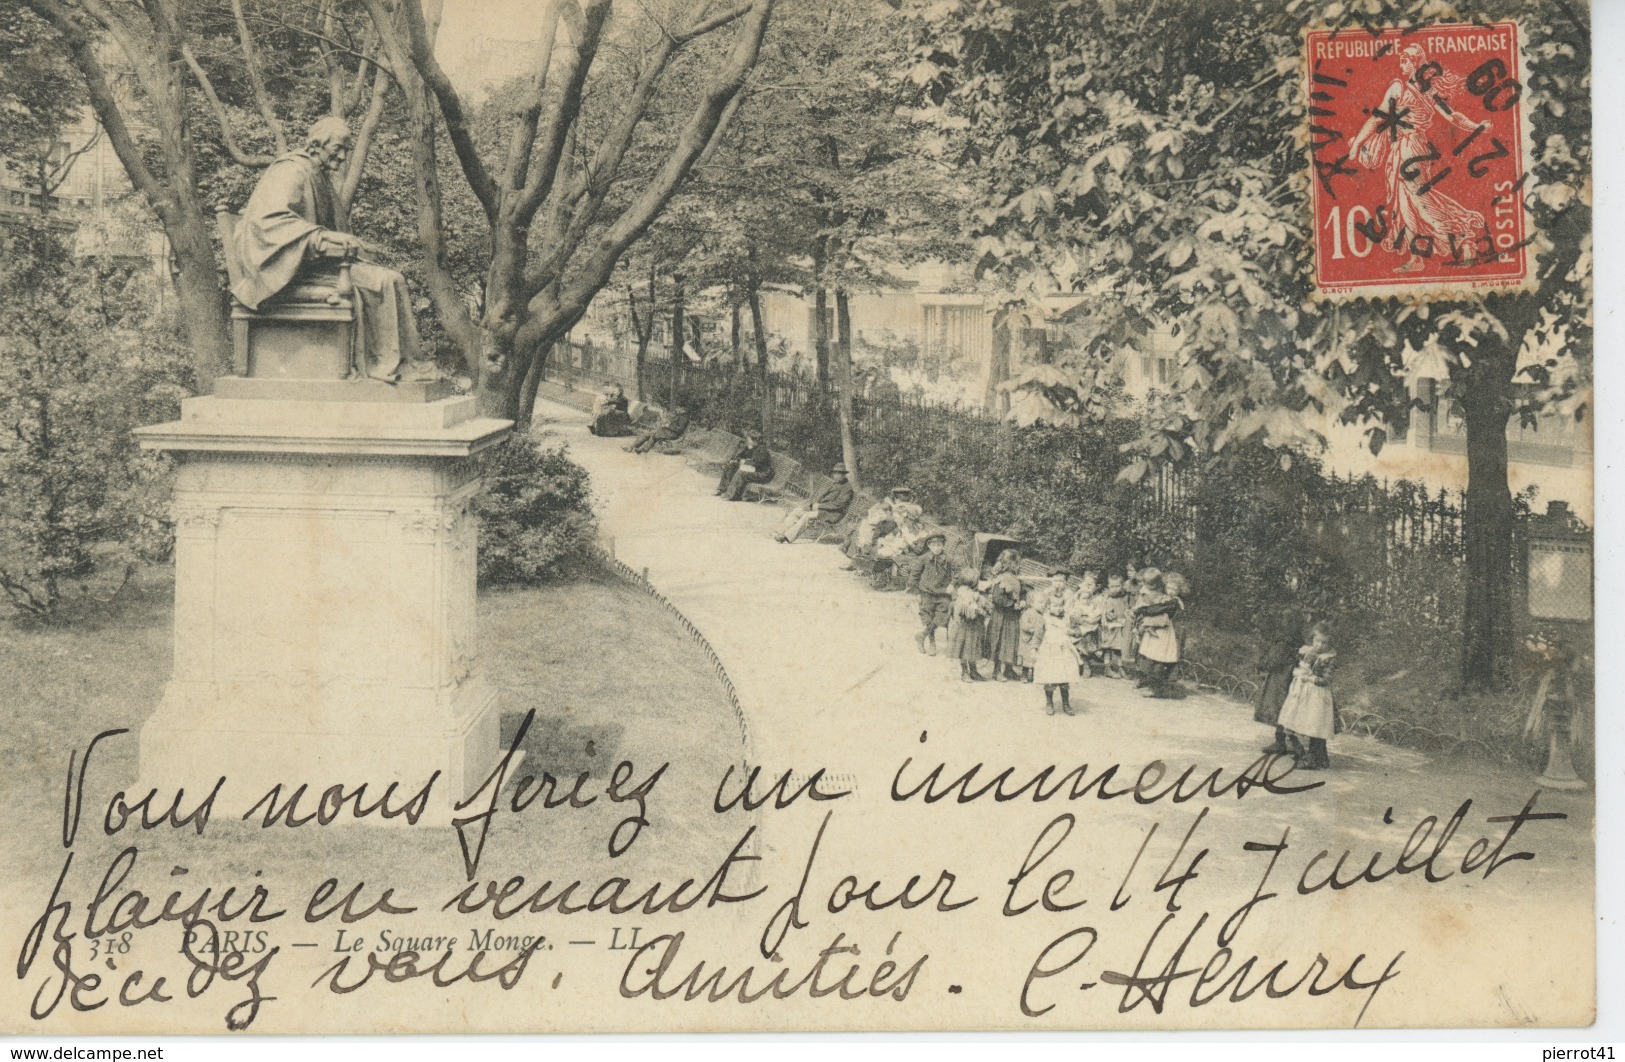 REPUBLIQUE FRANÇAISE
10
POSTES
O. ROTY
E. MOUCHON
12
21
09
Vous nous feriez un immense
plaisir en venant pour le 14 Juillet
décidez vous. Amitiés. C. Henry
318 PARIS. — Le Square Monge. — LL.
www.delcampe.net
pierrot41